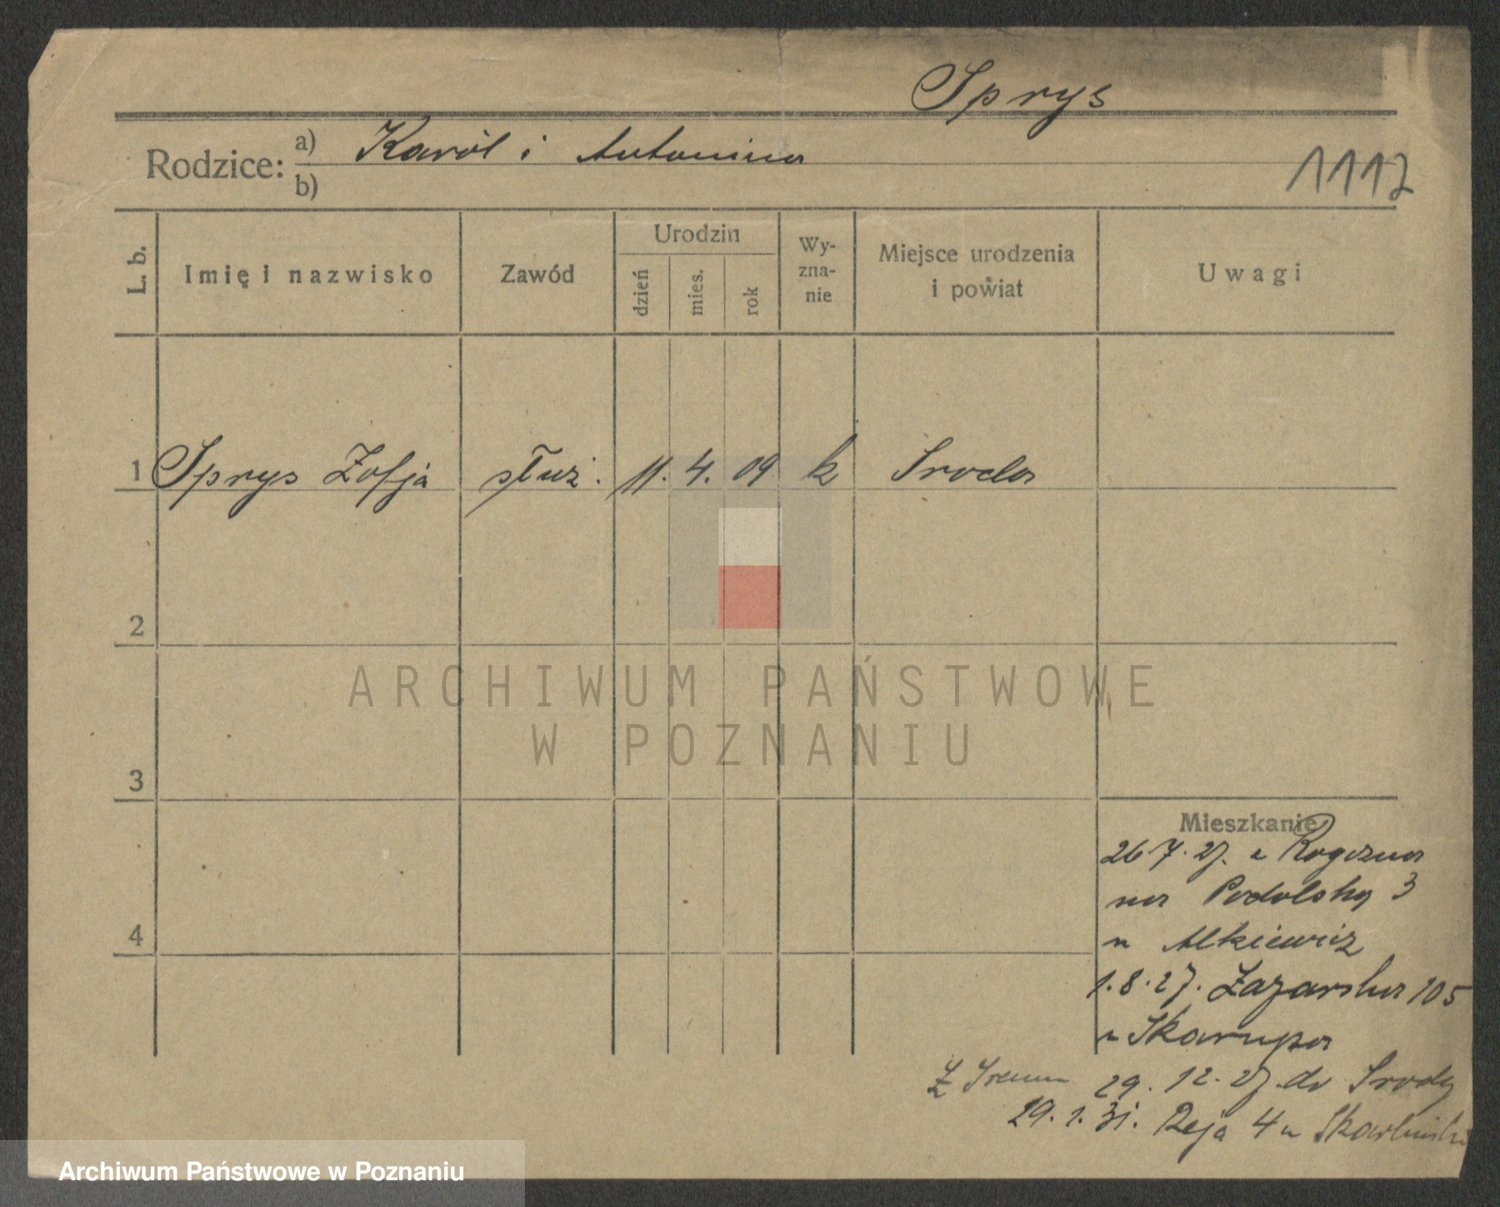 Sprys
Rodzice: a) Karól i Antonina
b)
1112
L. b. Imię i nazwisko Zawód Urodzin dzień mies. rok Wyznanie Miejsce urodzenia i powiat Uwagi
1 Sprys Zofja służ. 11. 4. 09 k Sroda
2
3
4
ARCHIWUM PAŃSTWOWE
W POZNANIU
Mieszkanie
26.7.27. z Rogozna
na Podolską 3
u Alkiewicz
1.8.27. Łazarska 105
u Skarupa
29.12.27. do Srody
Z Srem 29.1.31. Reja 4 u
Archiwum Państwowe w Poznaniu